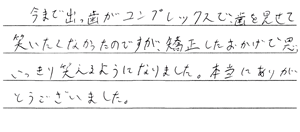 今まで出っ歯がコンプレックスで歯を見せて
笑いたくなかったのですが矯正したおかげで思
いっきり笑えるようになりました。本当にありが
とうございました。